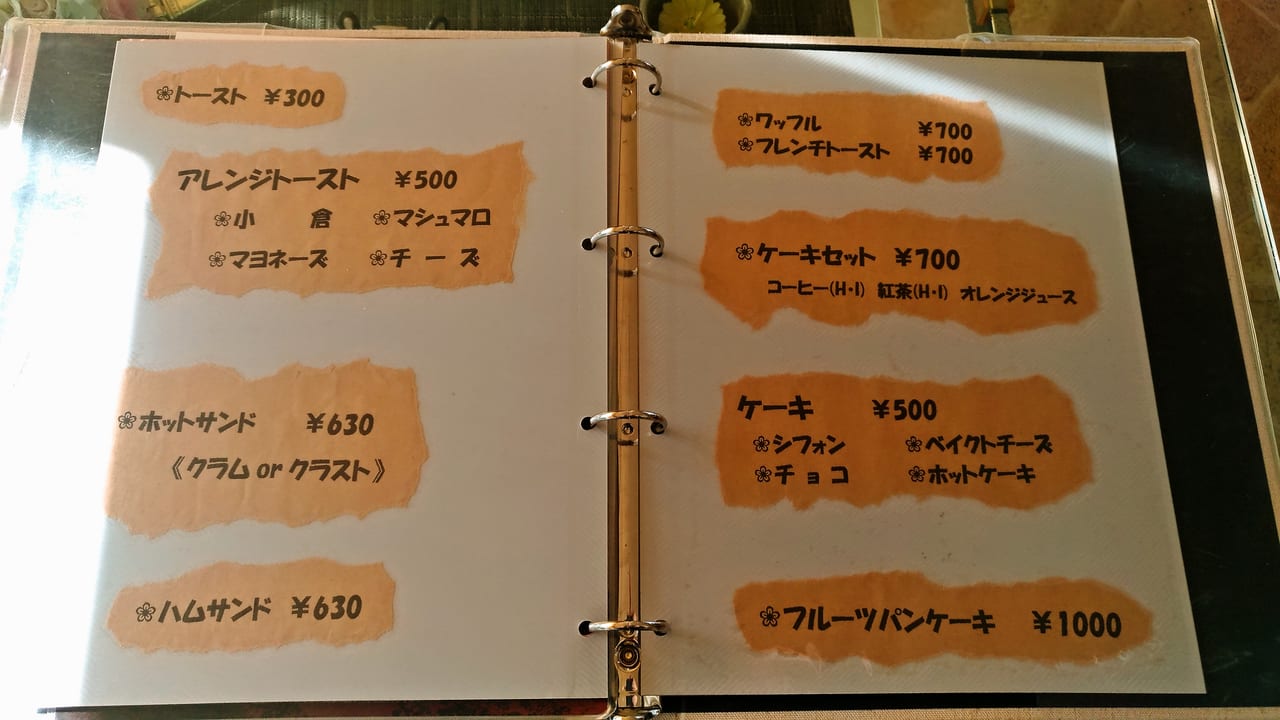 ❀トースト ¥300
アレンジトースト ¥500
❀小 倉 ❀マシュマロ
❀マヨネーズ ❀チーズ
❀ホットサンド ¥630
《クラム or クラスト》
❀ハムサンド ¥630
❀ワッフル ¥700
❀フレンチトースト ¥700
❀ケーキセット ¥700
コーヒー(H・I) 紅茶(H・I) オレンジジュース
ケーキ ¥500
❀シフォン ❀ベイクトチーズ
❀チョコ ❀ホットケーキ
❀フルーツパンケーキ ¥1000